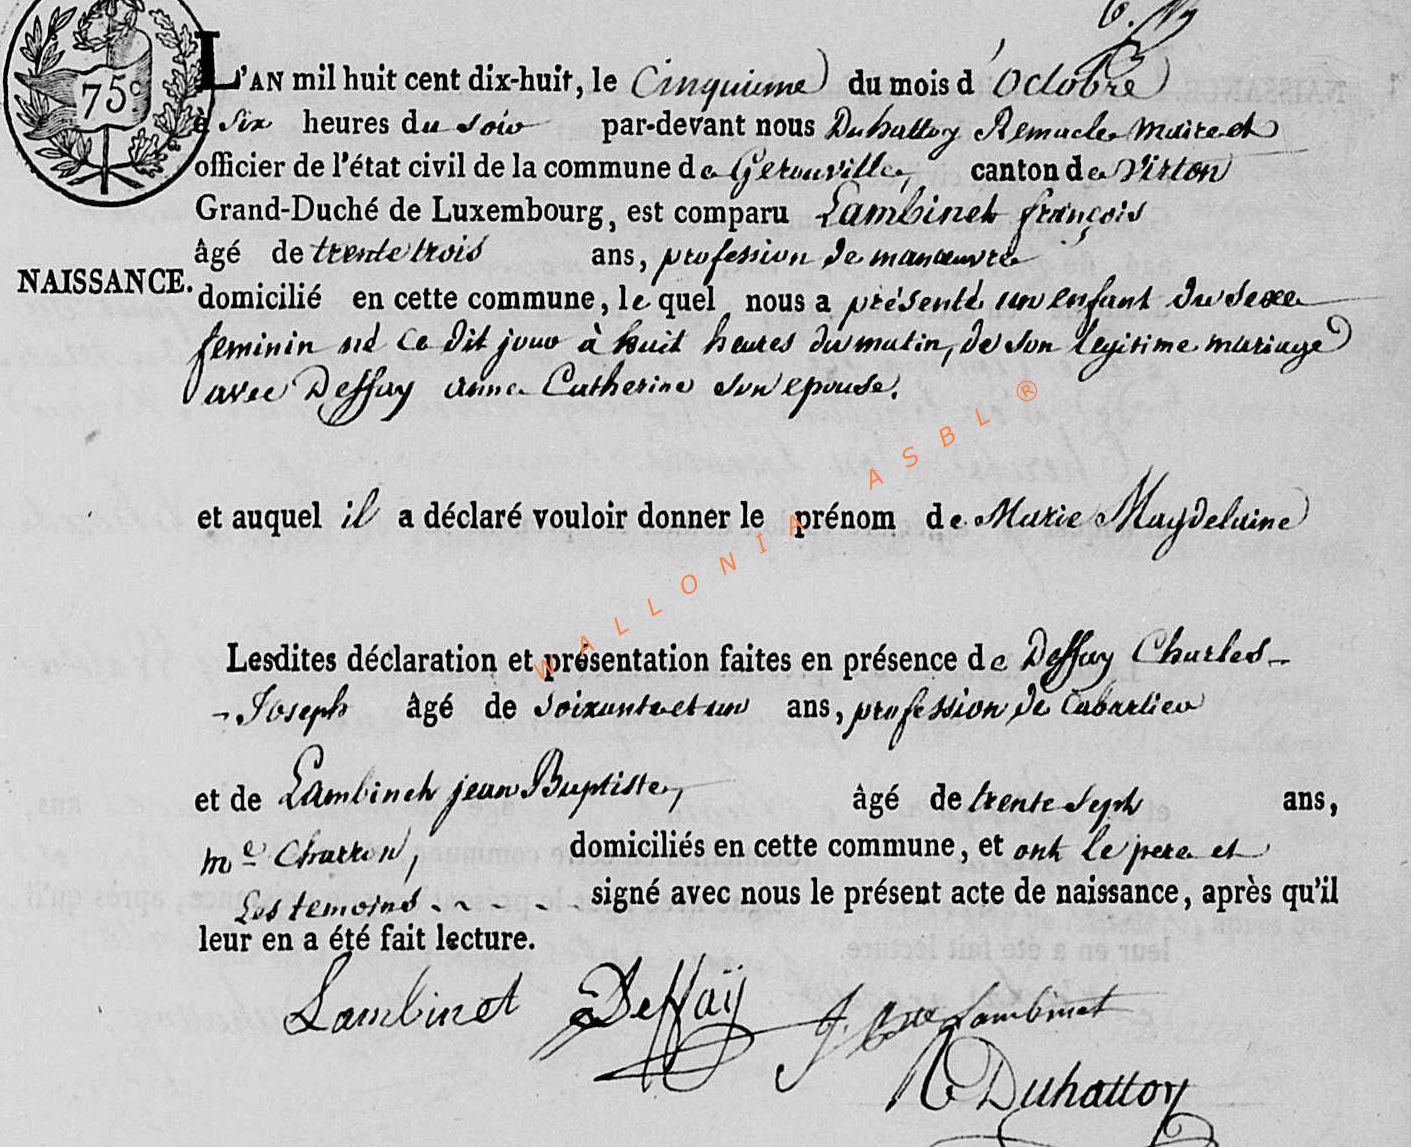 75c
L'AN mil huit cent dix-huit, le Cinquieme du mois d'Octobre
à six heures du soir par-devant nous Duhattoy Remacle maire et
officier de l'état civil de la commune de Gerouville, canton de Virton
Grand-Duché de Luxembourg, est comparu Lambinet françois
âgé de trente trois ans, profession de manœuvre
NAISSANCE.
domicilié en cette commune, le quel nous a présenté un enfant du sexe
feminin né ce dit jour à huit heures du matin, de son legitime mariage
avec Deffay anne Catherine son epouse.
et auquel il a déclaré vouloir donner le prénom de Marie Magdelaine
Lesdites déclaration et présentation faites en présence de Deffay Charles-
-Joseph âgé de soixante et un ans, profession de Cabartier
et de Lambinet jean Baptiste, âgé de trente sept ans,
me Charron, domiciliés en cette commune, et ont le pere et
Les temoins - - - - signé avec nous le présent acte de naissance, après qu'il
leur en a été fait lecture.
Lambinet Deffaÿ J. Bte Lambinet
R Duhattoy
WALLONIA ASBL ®